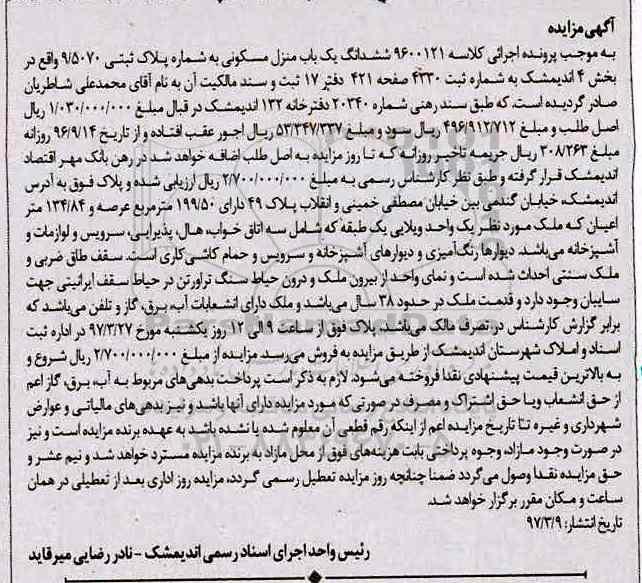 آگهی مزایده
به موجب پرونده اجرائی کلاسه ۹۶۰۰۱۲۱ ششدانگ یک باب منزل مسکونی به شماره پلاک ثبتی ۹/۵۰۷۰ واقع در
بخش ۴ اندیمشک به شماره ثبت ۴۳۳۰ صفحه ۴۲۱ دفتر ۱۷ ثبت و سند مالکیت آن به نام آقای محمدعلی شاطریان
صادر گردیده است، که طبق سند رهنی شماره ۲۰۳۴۰ دفترخانه ۱۳۲ اندیمشک در قبال مبلغ ۱/۰۳۰/۰۰۰/۰۰۰ ریال
اصل طلب و مبلغ ۴۹۶/۹۱۲/۷۱۲ ریال سود و مبلغ ۵۳/۳۴۷/۳۳۷ ریال اجور عقب افتاده و از تاریخ ۹۶/۹/۱۴ روزانه
مبلغ ۳۰۸/۲۶۳ ریال جریمه تأخیر روزانه که تا روز مزایده به اصل طلب اضافه خواهد شد در رهن بانک مهر اقتصاد
اندیمشک قرار گرفته و طبق نظر کارشناس رسمی به مبلغ ۲/۷۰۰/۰۰۰/۰۰۰ ریال ارزیابی شده و پلاک فوق به آدرس
اندیمشک، خیابان گندمی بین خیابان مصطفی خمینی و انقلاب پلاک ۴۹ دارای ۱۹۹/۵۰ مترمربع عرصه و ۱۳۴/۸۴ متر
اعیان که ملک مورد نظر یک واحد ویلایی یک طبقه که شامل سه اتاق خواب، هال، پذیرایی، سرویس و لوازمات و
آشپزخانه می‌باشد. دیوارها رنگ‌آمیزی و دیوارهای آشپزخانه و سرویس و حمام کاشی‌کاری است. سقف طاق ضربی و
ملک سنتی احداث شده است و نمای واحد از بیرون ملک و درون حیاط سنگ تراورتن در حیاط سقف ایرانیتی جهت
سایبان وجود دارد و قدمت ملک در حدود ۳۸ سال می‌باشد و ملک دارای انشعابات آب، برق، گاز و تلفن می‌باشد که
برابر گزارش کارشناس در تصرف مالک می‌باشد. پلاک فوق از ساعت ۹ الی ۱۲ روز یکشنبه مورخ ۹۷/۳/۲۷ در اداره ثبت
اسناد و املاک شهرستان اندیمشک از طریق مزایده به فروش می‌رسد. مزایده از مبلغ ۲/۷۰۰/۰۰۰/۰۰۰ ریال شروع و
به بالاترین قیمت پیشنهادی نقدا فروخته می‌شود. لازم به ذکر است پرداخت بدهی‌های مربوط به آب، برق، گاز اعم
از حق انشعاب و یا حق اشتراک و مصرف در صورتی که مورد مزایده دارای آنها باشد و نیز بدهی‌های مالیاتی و عوارض
شهرداری و غیره تا تاریخ مزایده اعم از اینکه رقم قطعی آن معلوم شده یا نشده باشد به عهده برنده مزایده است و نیز
در صورت وجود مازاد، وجوه پرداختی بابت هزینه‌های فوق از محل مازاد به برنده مزایده مسترد خواهد شد و نیم عشر و
حق مزایده نقدا وصول می‌گردد ضمنا چنانچه روز مزایده تعطیل رسمی گردد، مزایده روز اداری بعد از تعطیلی در همان
ساعت و مکان مقرر برگزار خواهد شد.
تاریخ انتشار: ۹۷/۳/۹
رئیس واحد اجرای اسناد رسمی اندیمشک - نادر رضایی میرقاید